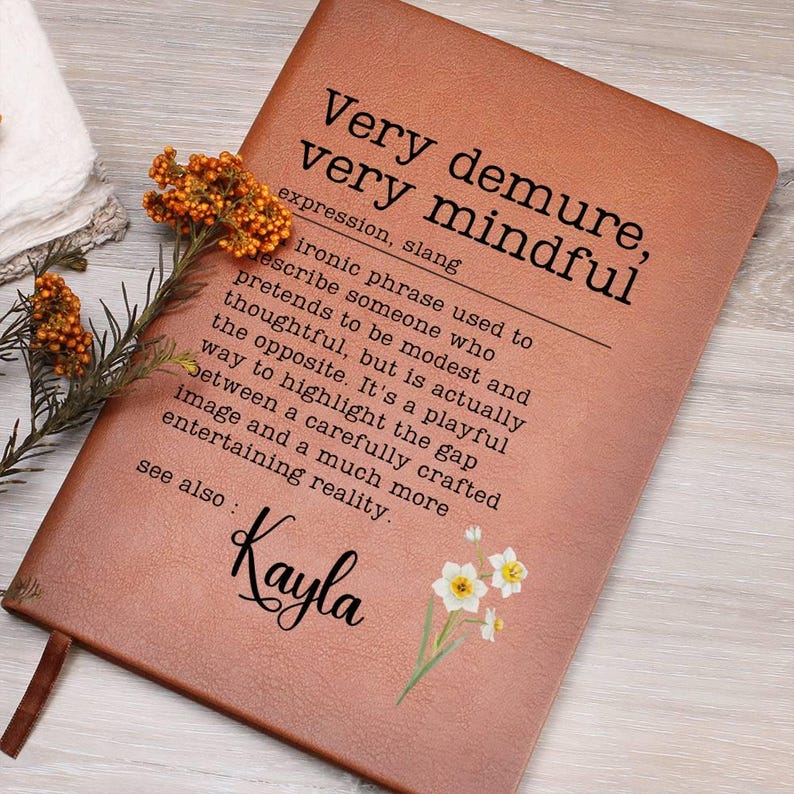 Very demure,
very mindful
expression, slang
ironic phrase used to
describe someone who
pretends to be modest and
thoughtful, but is actually
the opposite. It's a playful
way to highlight the gap
between a carefully crafted
image and a much more
entertaining reality.
see also :
Kayla